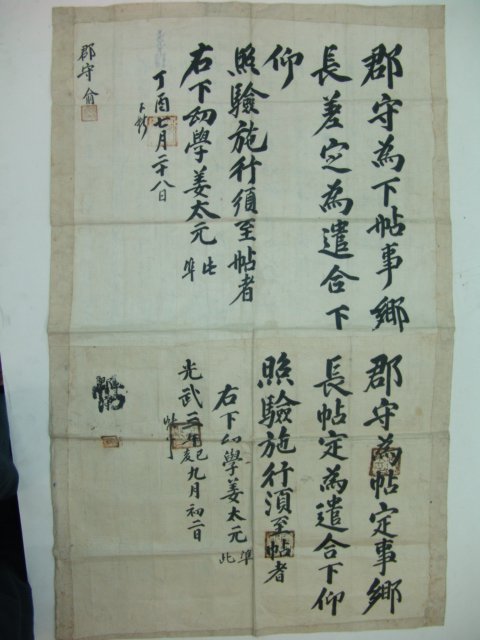 郡守為下帖事鄉
長差定為遣合下
仰
照驗施行須至帖者
右下幼學姜太元 準此
丁酉七月二十八日
下帖
郡守 俞
郡守為帖定事鄉
長帖定為遣合下仰
照驗施行須至帖者
右下幼學姜太元 準此
光武三年己亥九月初二日